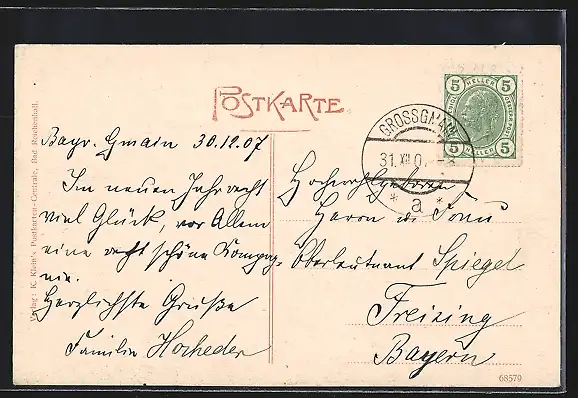 POSTKARTE.
5 HELLER 5
5 HELLER 5
GROSSGMAIN
31. XII. 0
* a *
Bayr. Gmain 30.12.07
Im neuen Jahr recht
viel Glück, vor Allem
eine recht schöne Kompag-
nie.
Herzlichste Grüße
Familie Horheder
Hochwohlgeboren
Herrn u.
Oberleutnant Spiegel
Freising
Bayern
Verlag: K. Klein's Postkarten-Centrale, Bad Reichenhall.
68579